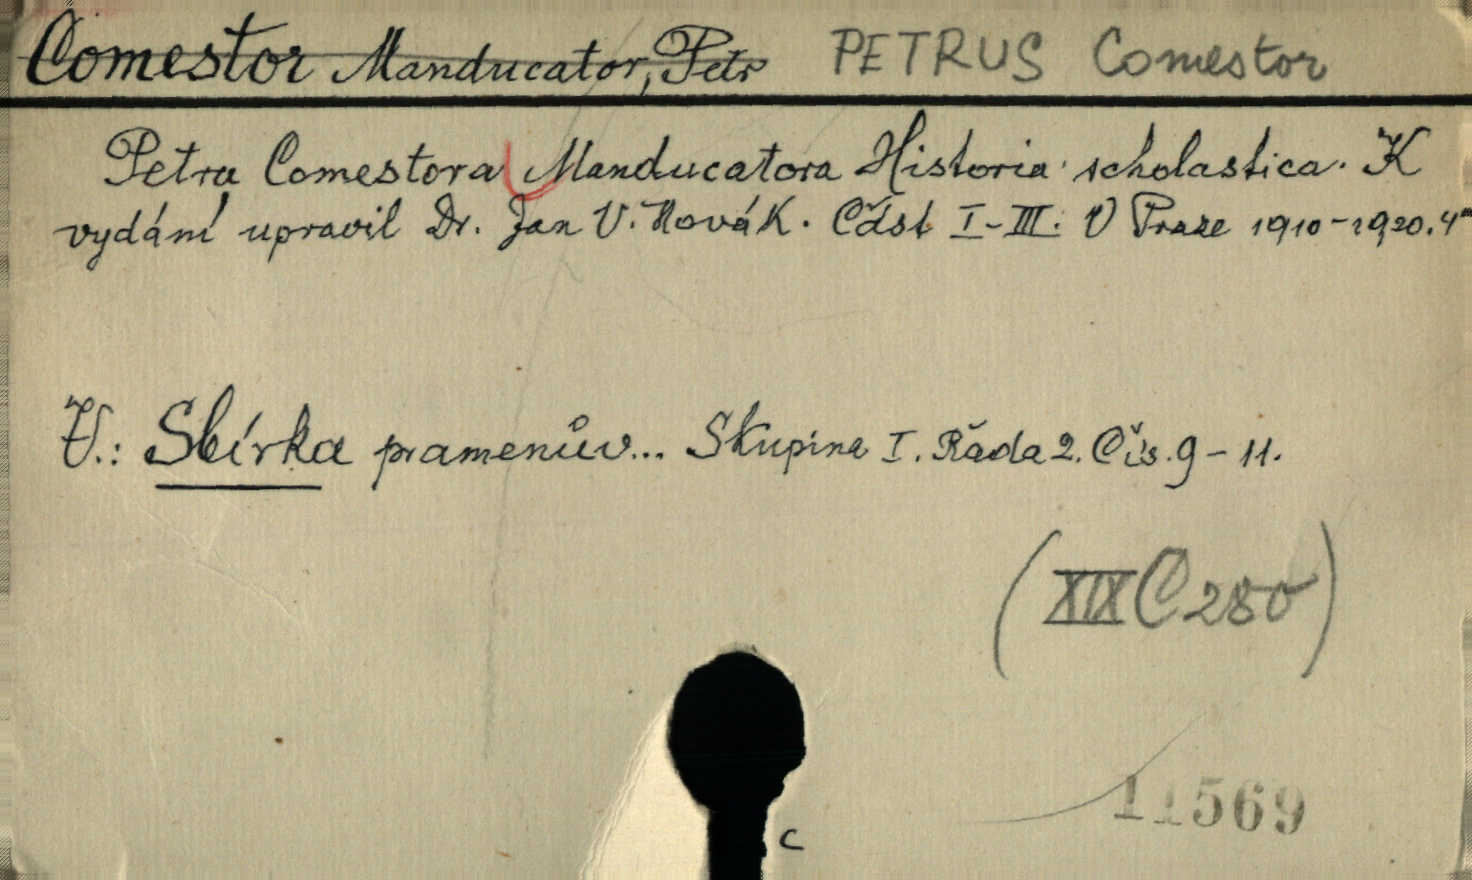 Comestor Manducator, Petr PETRUS Comestor
Petra Comestora Manducatora Historia scholastica. K
vydání upravil Dr. Jan V. Novák. Část I-III. V Praze 1910-1920. 4°
V.: Sbírka pramenův... Skupina I. Řada 2. Čís. 9-11.
(XIX C 280)
11569
c